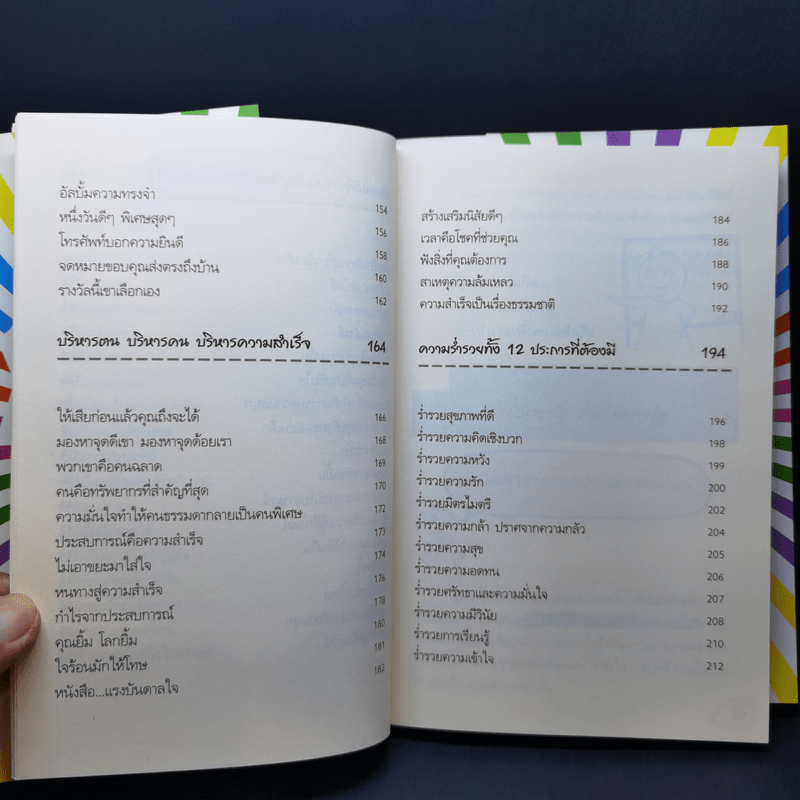 อัลบั้มความทรงจำ 154
หนึ่งวันดีๆ พิเศษสุดๆ 156
โทรศัพท์บอกความยินดี 158
จดหมายขอบคุณส่งตรงถึงบ้าน 160
รางวัลนี้เขาเลือกเอง 162
บริหารตน บริหารคน บริหารความสำเร็จ 164
ให้เสียก่อนแล้วคุณถึงจะได้ 166
มองหาจุดดีเขา มองหาจุดด้อยเรา 168
พวกเขาคือคนฉลาด 169
คนคือทรัพยากรที่สำคัญที่สุด 170
ความมั่นใจทำให้คนธรรมดากลายเป็นคนพิเศษ 172
ประสบการณ์คือความสำเร็จ 173
ไม่เอาขยะมาใส่ใจ 174
หนทางสู่ความสำเร็จ 176
กำไรจากประสบการณ์ 178
คุณยิ้ม โลกยิ้ม 180
ใจร้อนมักให้โทษ 181
หนังสือ...แรงบันดาลใจ 182
สร้างเสริมนิสัยดีๆ 184
เวลาคือโชคที่ช่วยคุณ 186
ฟังสิ่งที่คุณต้องการ 188
สาเหตุความล้มเหลว 190
ความสำเร็จเป็นเรื่องธรรมชาติ 192
ความร่ำรวยทั้ง 12 ประการที่ต้องมี 194
ร่ำรวยสุขภาพที่ดี 196
ร่ำรวยความคิดเชิงบวก 198
ร่ำรวยความหวัง 199
ร่ำรวยความรัก 200
ร่ำรวยมิตรไมตรี 202
ร่ำรวยความกล้า ปราศจากความกลัว 204
ร่ำรวยความสุข 205
ร่ำรวยความอดทน 206
ร่ำรวยศรัทธาและความมั่นใจ 207
ร่ำรวยความมีวินัย 208
ร่ำรวยการเรียนรู้ 210
ร่ำรวยความเข้าใจ 212